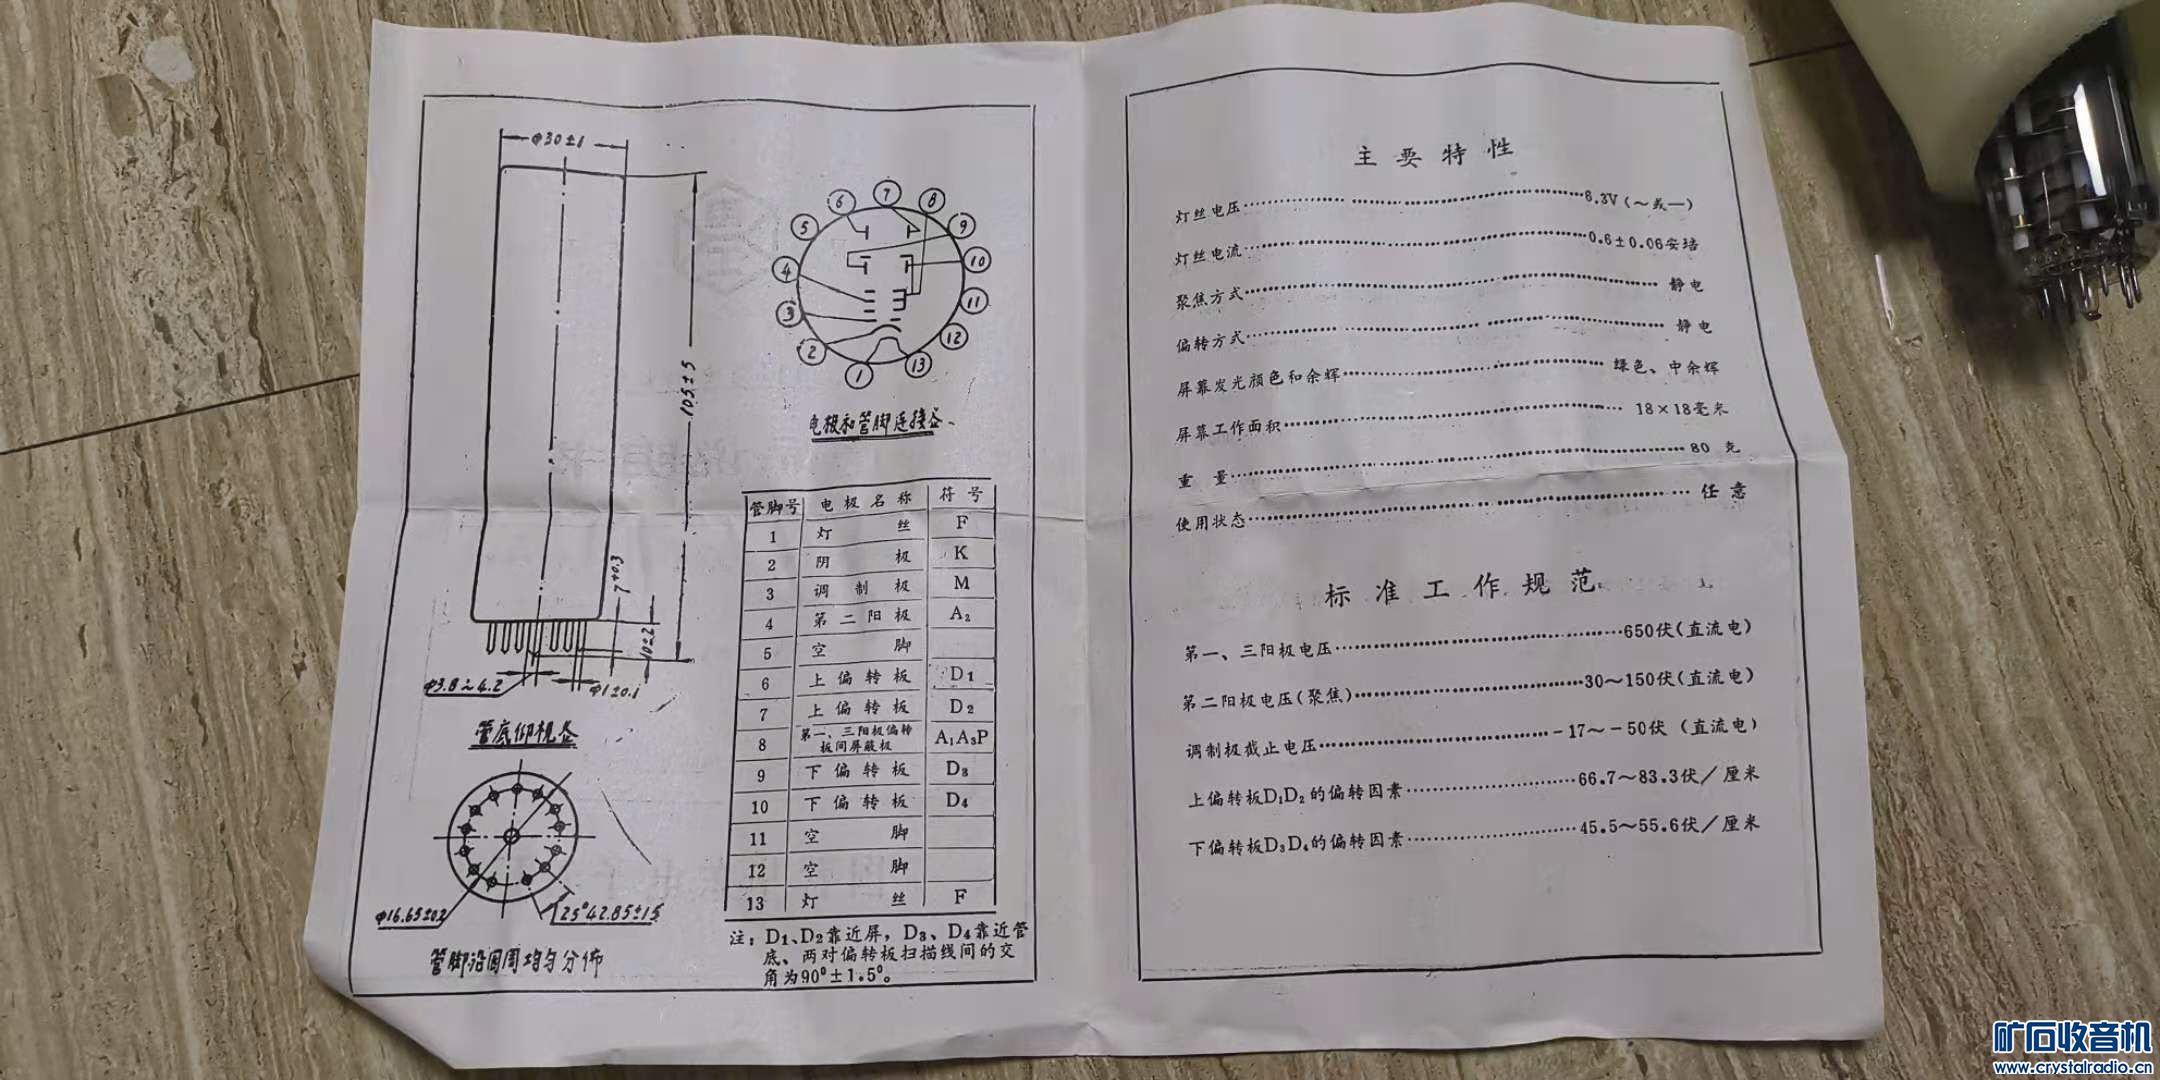 Φ30±1
105±5
7+0.3
10±2
Φ3.8~4.2
Φ1±0.1
管底仰视
Φ16.65±0.2
25°42.85±15
管脚沿圆周均匀分佈
1
2
3
4
5
6
7
8
9
10
11
12
13
电极和管脚连接
管脚号 电极名称 符号
1 灯丝 F
2 阴极 K
3 调制极 M
4 第二阳极 A₂
5 空脚
6 上偏转板 D₁
7 上偏转板 D₂
8 第一、三阳极偏转板间屏蔽极 A₁A₃P
9 下偏转板 D₃
10 下偏转板 D₄
11 空脚
12 空脚
13 灯丝 F
注：D₁、D₂靠近屏，D₃、D₄靠近管
底、两对偏转板扫描线间的交
角为90°±1.5°。
主要特性
灯丝电压……6.3V（～或—）
灯丝电流……0.6±0.06安培
聚焦方式……静电
偏转方式……静电
屏幕发光颜色和余辉……绿色、中余辉
屏幕工作面积……18×18毫米
重量……80克
使用状态……任意
标准工作规范
第一、三阳极电压……650伏（直流电）
第二阳极电压（聚焦）……30～150伏（直流电）
调制极截止电压……-17～-50伏（直流电）
上偏转板D₁D₂的偏转因素……66.7～83.3伏／厘米
下偏转板D₃D₄的偏转因素……45.5～55.6伏／厘米
矿石收音机
www.crystalradio.cn